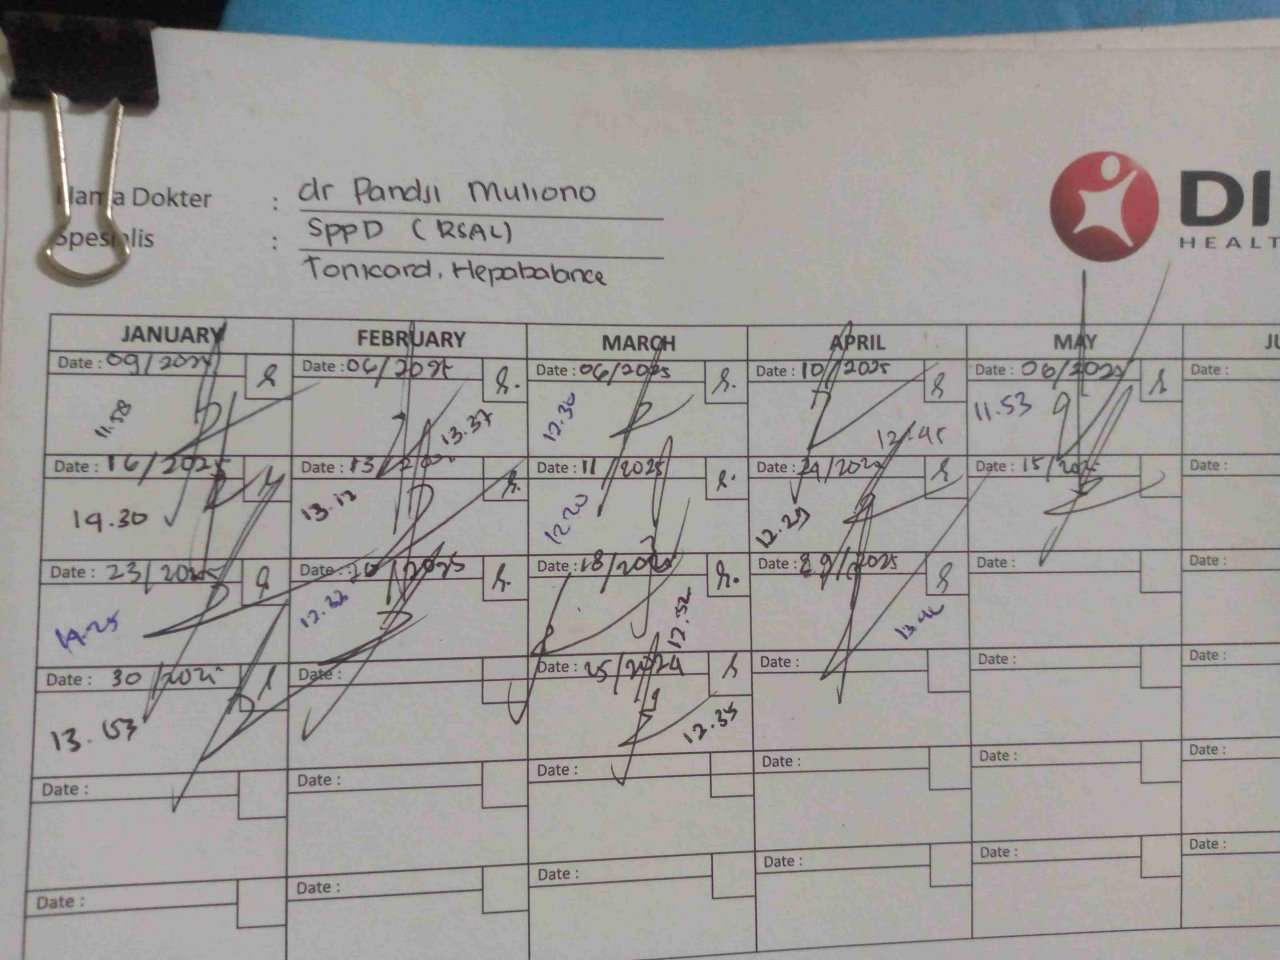 Nama Dokter : dr Pandji Muliono
Spesialis : SppD (RSAL)
Tonicard, Hepabalance
DI
HEALT
JANUARY FEBRUARY MARCH APRIL MAY JU
Date : 09/2025 Date : 06/2025 Date : 06/2025 Date : 10/2025 Date : 06/2025 Date :
11.58 13.37 12.30 12.45 11.53
Date : 16/2025 Date : 13/ Date : 11/2025 Date : 24/202 Date : 15/2025 Date :
14.30 13.12 12.20 12.29
Date : 23/2025 Date : /2025 Date : 18/2025 Date : 29/2025 Date : Date :
14.25 12.32 12.52
Date : 30/2025 Date : Date : 25/2024 Date : Date : Date :
13.53 12.35
Date : Date : Date : Date : Date : Date :
Date : Date : Date : Date : Date : Date :